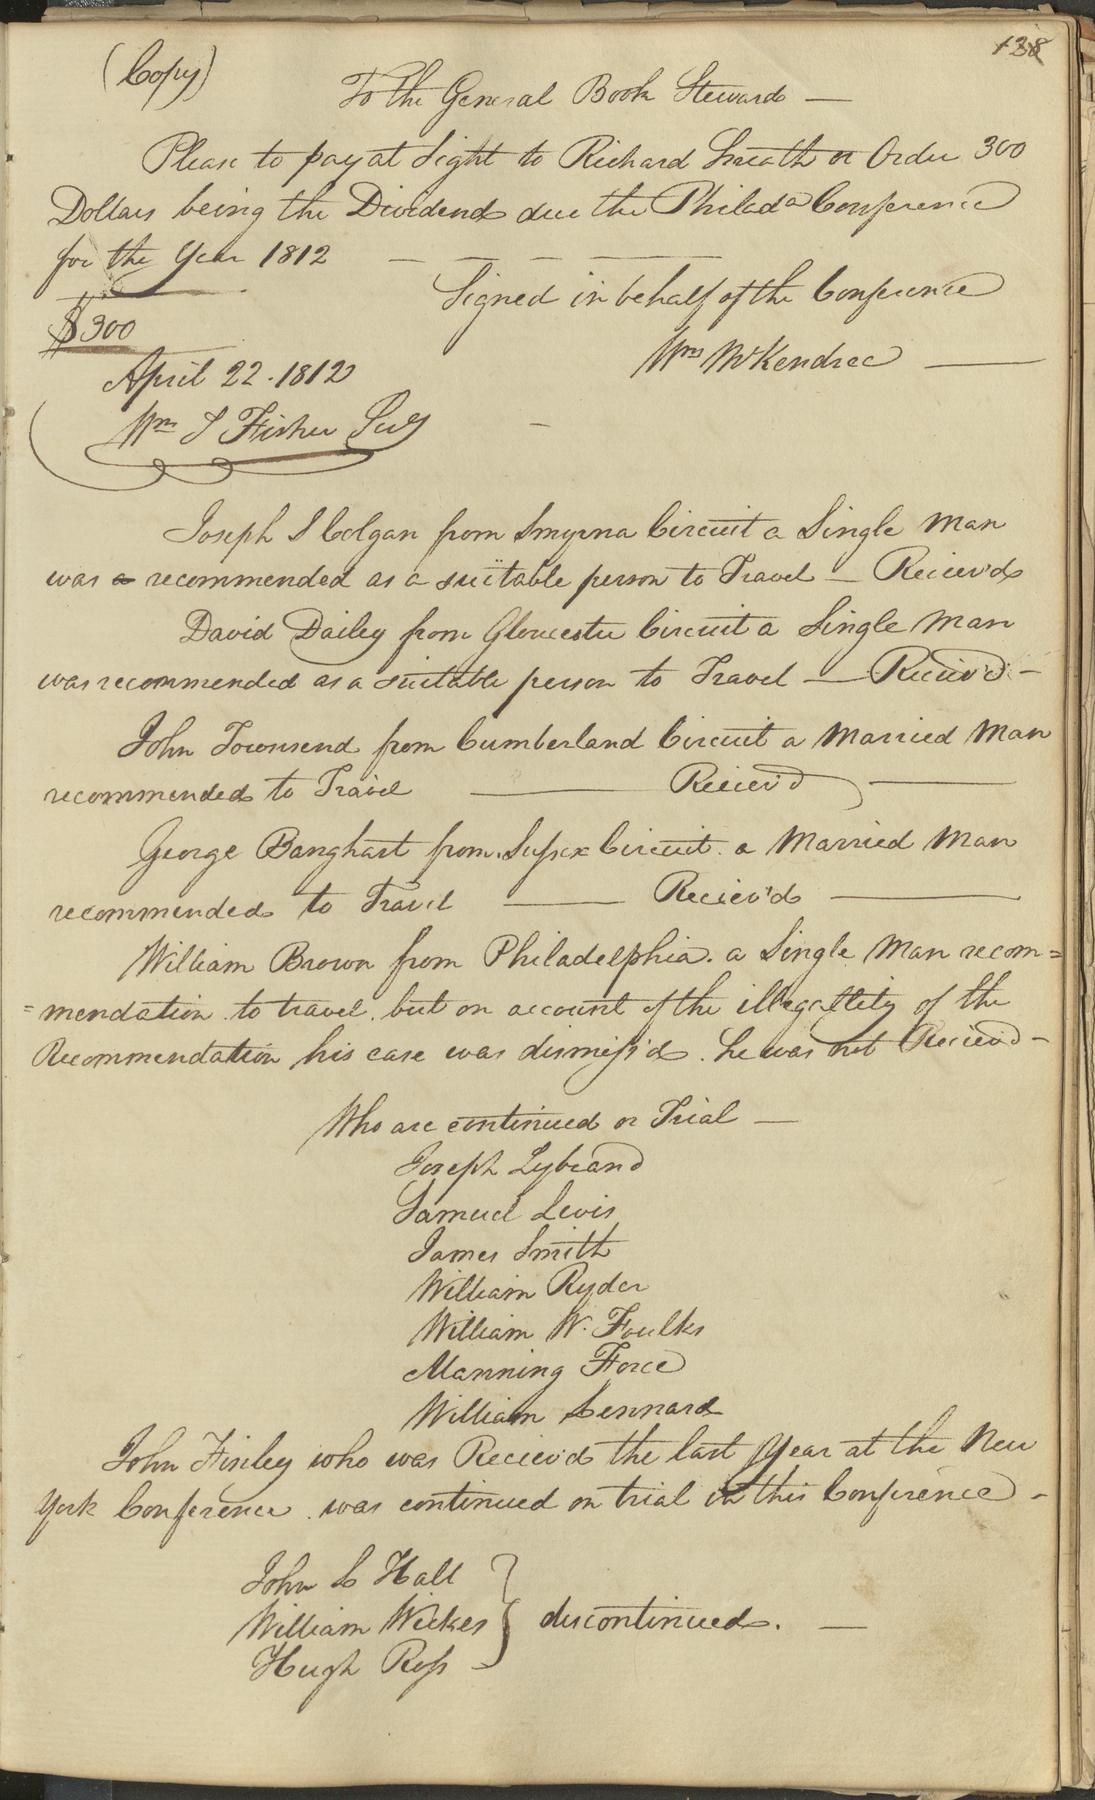 138
(Copy)
To the General Book Steward —
Please to pay at Sight to Richard Sneath or Order 300
Dollars being the Dividend due the Philada Conference
for the Year 1812 — — — —
Signed in behalf of the Conference
$300
Wm McKendree —
April 22. 1812
Wm S Fisher Secy
Joseph S Colgan from Smyrna Circuit a Single Man
was a recommended as a suitable person to Travel — Reciev'd
David Dailey from Gloucester Circuit a Single Man
was recommended as a suitable person to Travel — Reciev'd —
John Townsend from Cumberland Circuit a Married Man
recommended to Travel — Reciev'd —
George Banghart from Sussex Circuit. a Married Man
recommended to Travel — Reciev'd —
William Brown from Philadelphia. a Single Man recom=
=mendation to travel. but on account of the illegallity of the
Recommendation his case was dismiss'd. he was not Recievd —
Who are continued on Trial —
Joseph Lybrand
Samuel Levis
James Smith
William Ryder
William W. Foulks
Manning Force
William Lennard
John Finley who was Reciev'd the last Year at the New
York Conference was continued on trial in this Conference —
John L Hall
William Wickes } discontinued. —
Hugh Ross